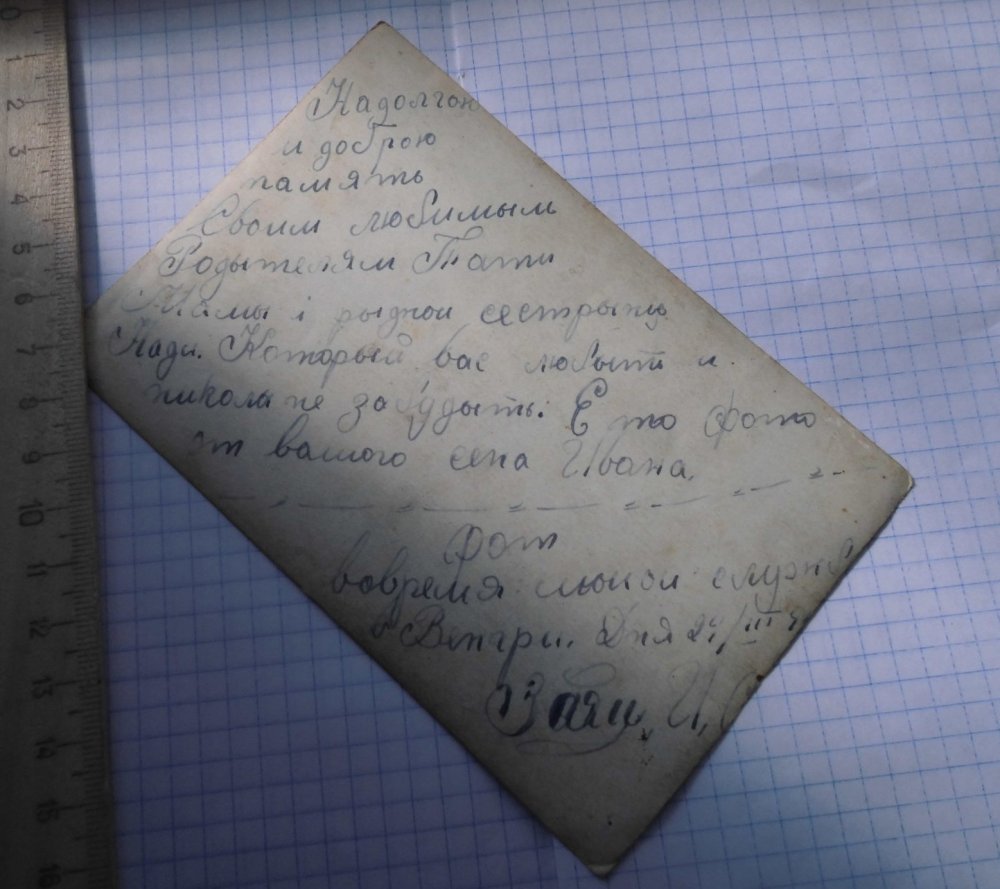 На долгою
и доброю
память
Своим любимым
Родытелям Тати
Мамы і рыдной сестрыцы
Нади. Который вас любыть и
николи не забудыть. Е то фото
от вашого сена Ивана.
Фот
вовремя моюой службы
в Венгри. Дня 24/III 4
Заяц И.
0
1
2
3
4
5
6
7
8
9
10
11
12
13
14
15
16